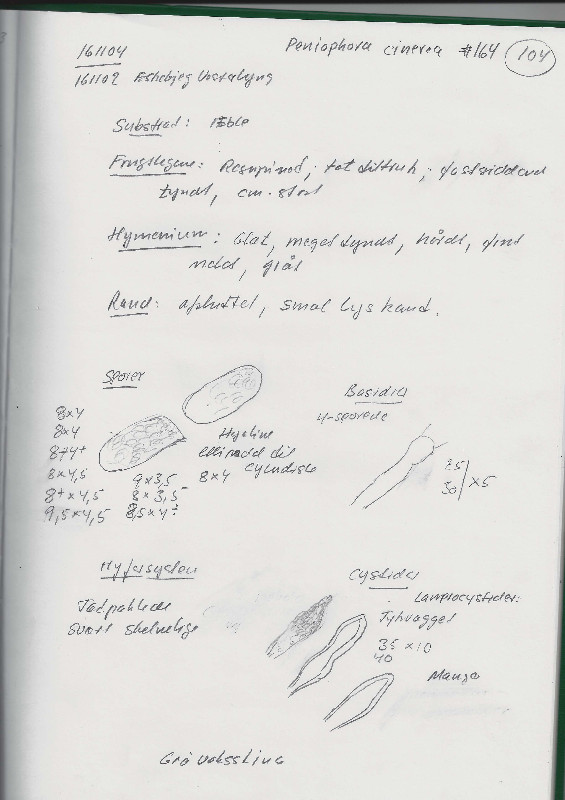 161104
Peniophora cinerea #164 104
161102 Eskebjerg Vesterlyng
Substrat: Æble
Frugtlegeme: Resupinat, tæt tiltryk, fastsiddende
tyndt, cm-stort
Hymenium: Glat, meget tyndt, hårdt, fint
gråt
Rand: afsluttet, smal lys kant.
Sporer
8x4
8x4
8+4+
8x4,5
8+x4,5
9,5x4,5
9x3,5
8x3,5
8,5x4?
8x4
Hyaline
til
cylindiske
Basidia
4-sporede
25
30/x5
Hyfesystem
Tætpakkede
svært
Cystider
Lamprocystider:
Tykvægget
35 x10
40
Mange
Grå Voksskind